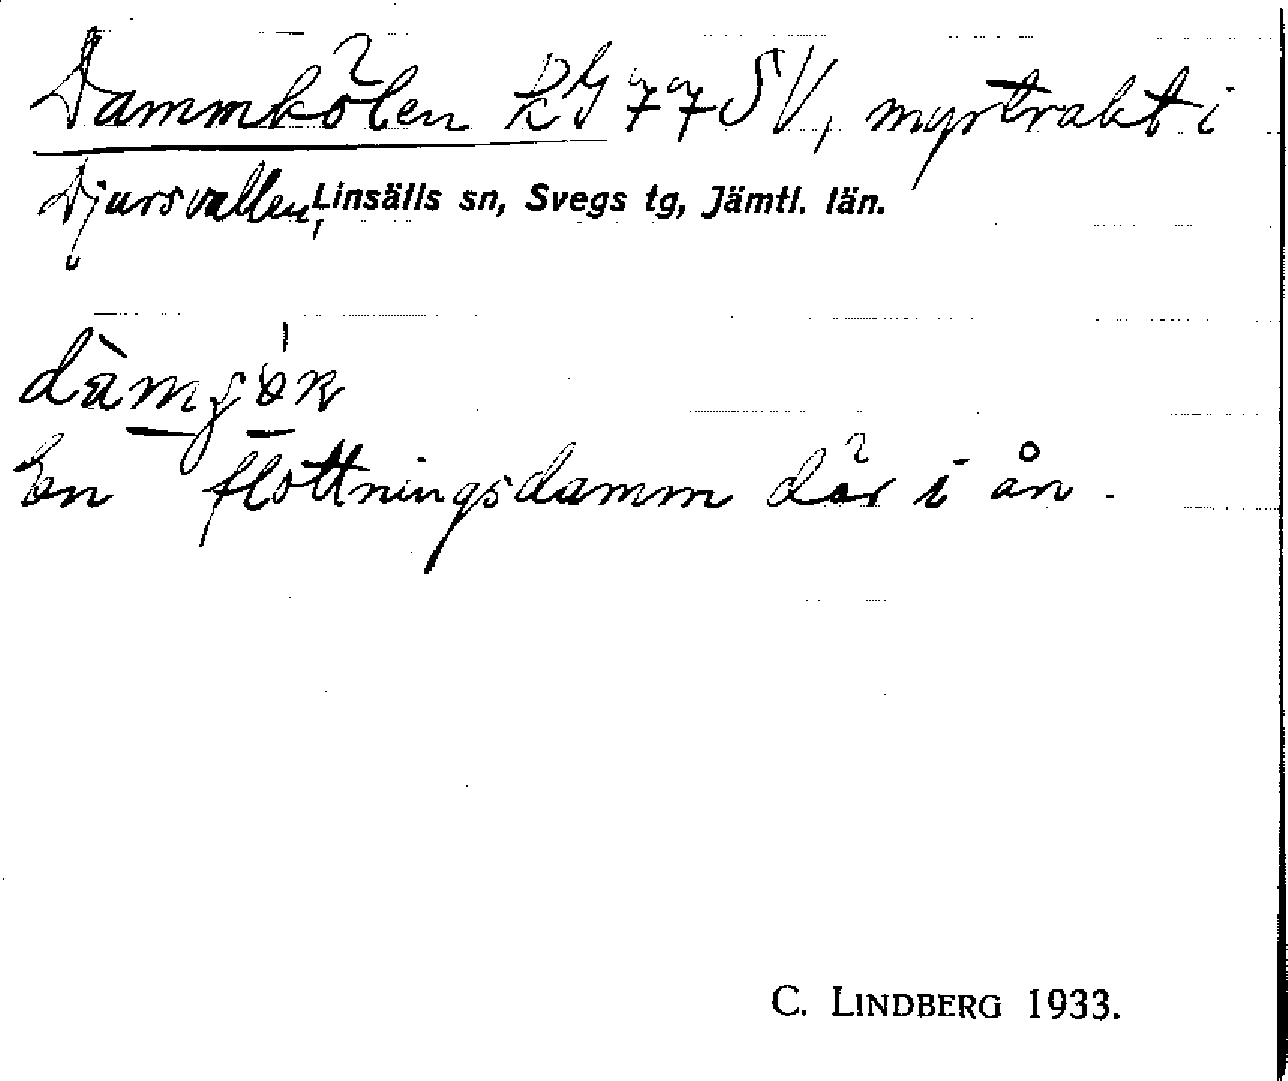 Dammkölen kG 77 SV, myrtrakt i
Djursvallen, Linsälls sn, Svegs tg, Jämtl. län.
En flottningsdamm där i ån.
C. LINDBERG 1933.